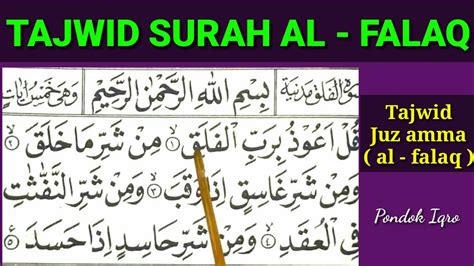 TAJWID SURAH AL - FALAQ
الفلق مدنية بِسْمِ اللهِ الرَّحْمٰنِ الرَّحِيْمِ وهي خمس ايات
قُلْ اَعُوْذُ بِرَبِّ الْفَلَقِ ۝١ مِنْ شَرِّ مَا خَلَقَ ۝٢
وَمِنْ شَرِّ غَاسِقٍ اِذَا وَقَبَ ۝٣ وَمِنْ شَرِّ النَّفّٰثٰتِ
فِى الْعُقَدِ ۝٤ وَمِنْ شَرِّ حَاسِدٍ اِذَا حَسَدَ ۝٥
Tajwid
Juz amma
( al - falaq )
Pondok Iqro